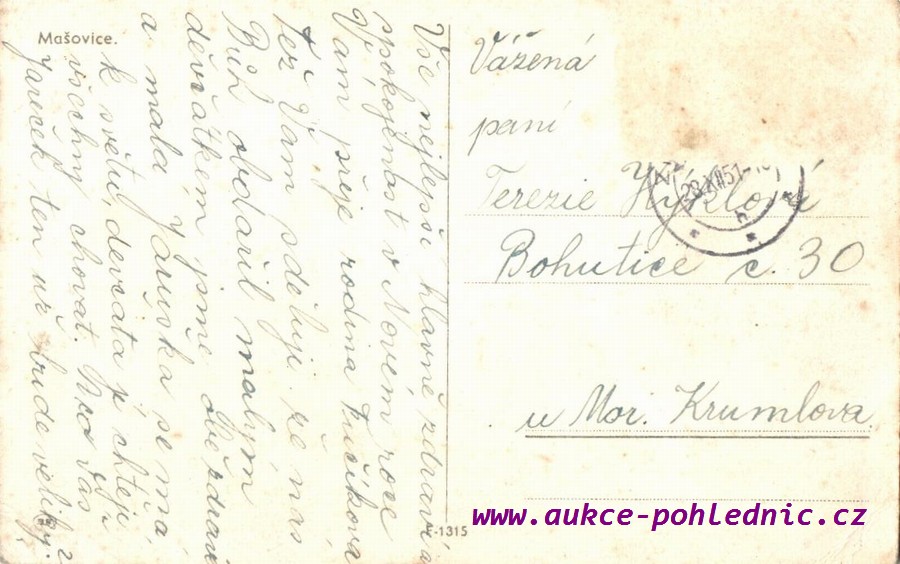 Mašovice.
Vše nejlepší hlavně zdraví a
spokojenost v Novém roce
Vám přeje rodina
Též Vám sděluji, že nás
Bůh obdařil malým
děvčátkem jsme obě zdravé
a malá Jaruška se má
k světu, děvčata ji chtějí
všechny chovat. Vás
Jareček ten už bude veliký.
F-1315
Vážená
paní
Terezie Hýklová
Bohutice č. 30
u Mor. Krumlova
28.XII.51
www.aukce-pohlednic.cz